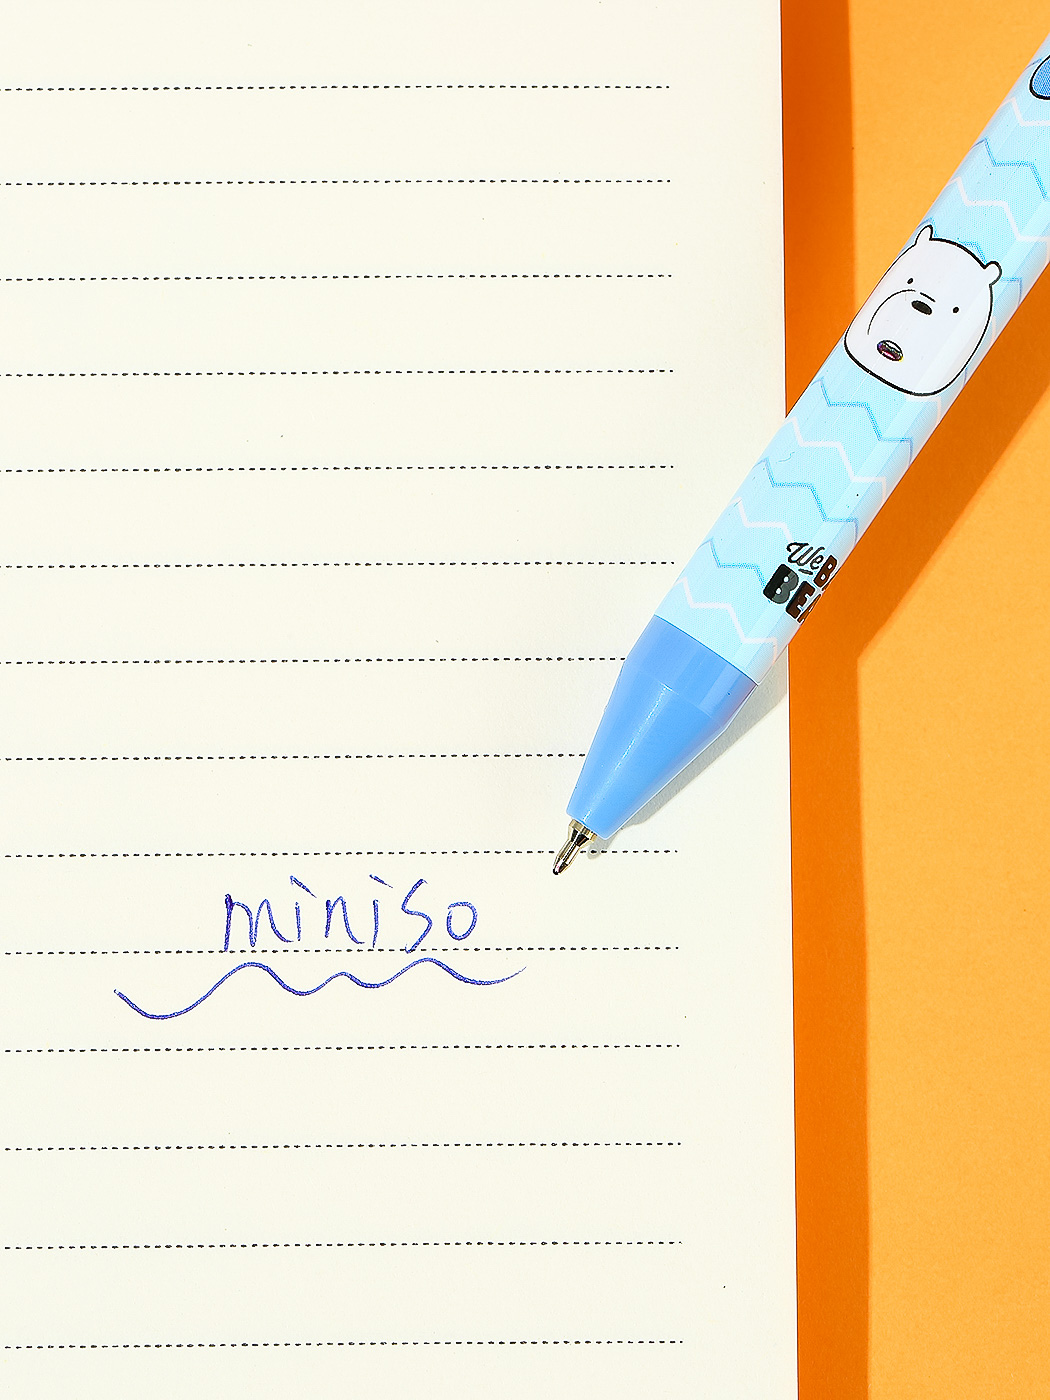 We B
BEA
miniso